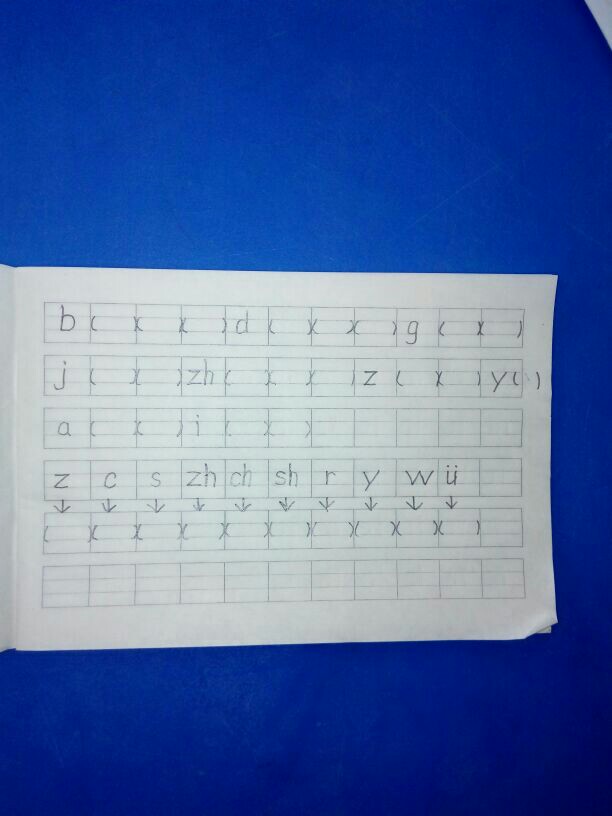 b( )( )( )d( )( )( )g( )( )
j( )( )zh( )( )( )z( )( )y( )
a( )( )i( )( )
z c s zh ch sh r y w ü
↓ ↓ ↓ ↓ ↓ ↓ ↓ ↓ ↓ ↓
( )( )( )( )( )( )( )( )( )( )